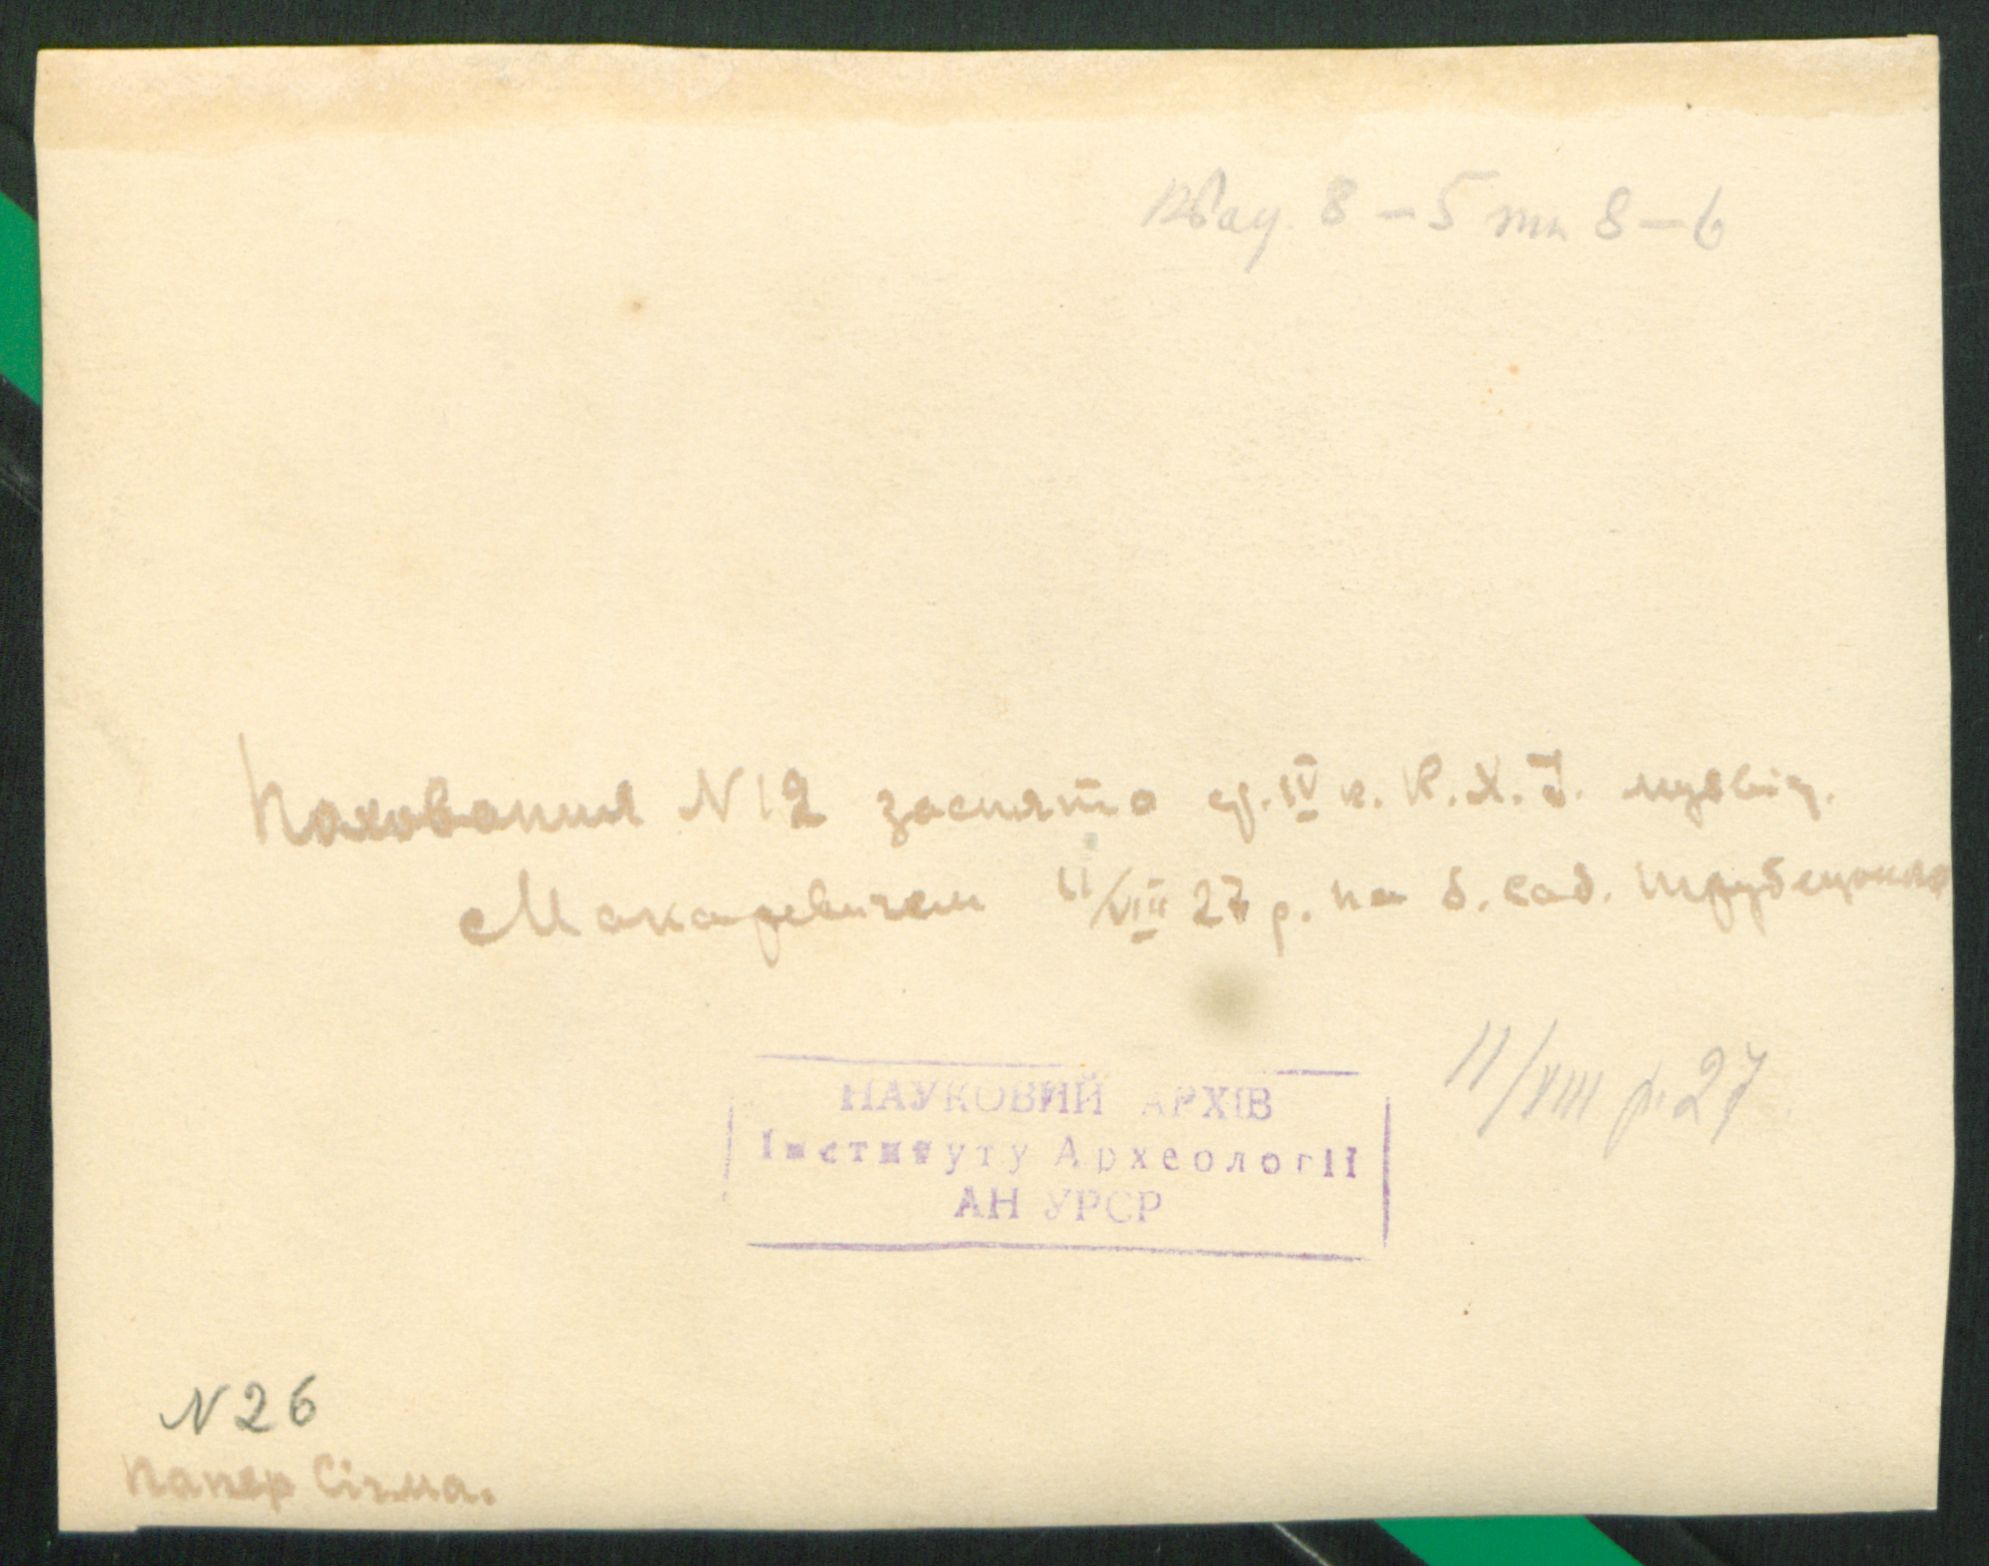 Квад. 8 – 5 та 8 – 6
Поховання N 12 заснято ср. IV к. К. Х. І. музвід.
Макаревичем 11/VIII 27 р. на б. сад. Трубецького
11/VIII р. 27
НАУКОВИЙ АРХІВ
Інституту Археології
АН УРСР
N 26
Папер Сігма.